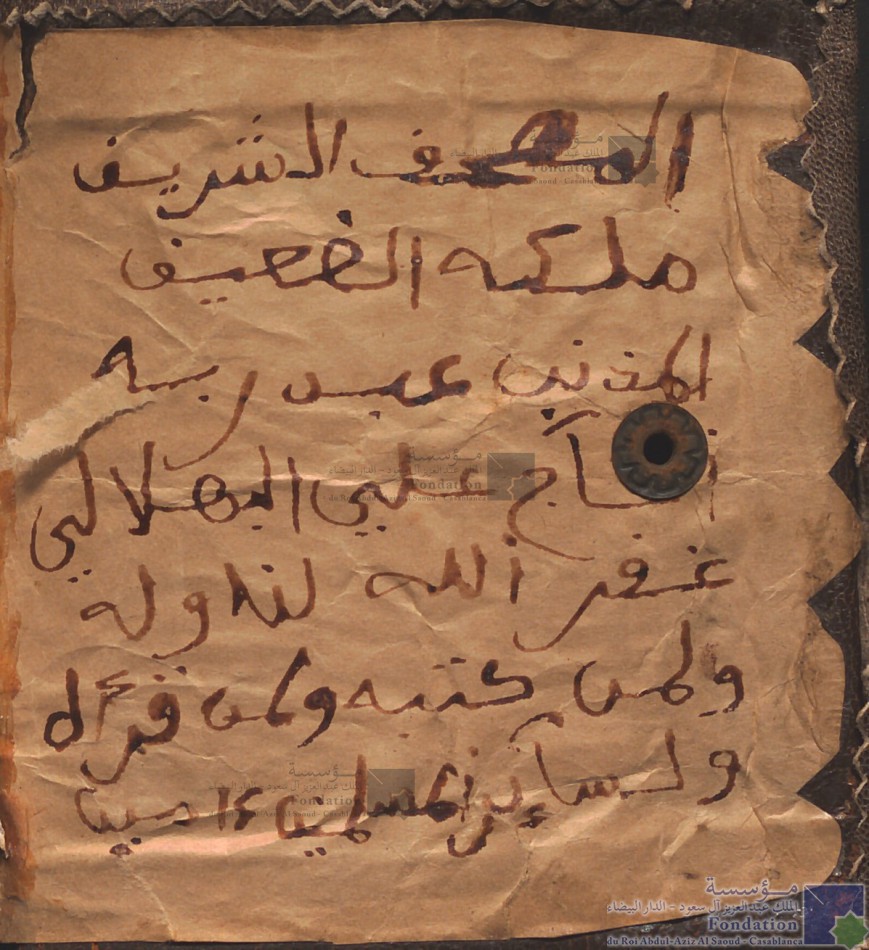 المصحف الشريف
ملكه الضعيف
المذنب عبد ربه
الحاج علي البهلالي
غفر الله لنا وله
ولمن كتبه ولمن قرأه
ولسائر المسلمين ءامين
مؤسسة
الملك عبد العزيز آل سعود - الدار البيضاء
Fondation
du Roi Abdul-Aziz Al Saoud - Casablanca